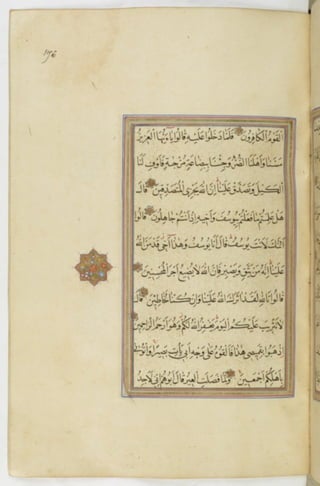 القوم الكافرون فلما دخلوا عليه قالوا يا ايها العزيز
مسنا واهلنا الضر وجئنا ببضاعة مزجية فاوف لنا
الكيل وتصدق علينا ان الله يجزي المتصدقين قال
هل علمتم ما فعلتم بيوسف واخيه اذ انتم جاهلون قالوا
ائنك لانت يوسف قال انا يوسف وهذا اخي قد من الله
علينا انه من يتق ويصبر فان الله لا يضيع اجر المحسنين
قالوا تالله لقد اثرك الله علينا وان كنا لخاطئين قال
لا تثريب عليكم اليوم يغفر الله لكم وهو ارحم الراحمين
اذهبوا بقميصي هذا فالقوه على وجه ابي يات بصيرا واتوني
باهلكم اجمعين ولما فصلت العير قال ابوهم اني لاجد